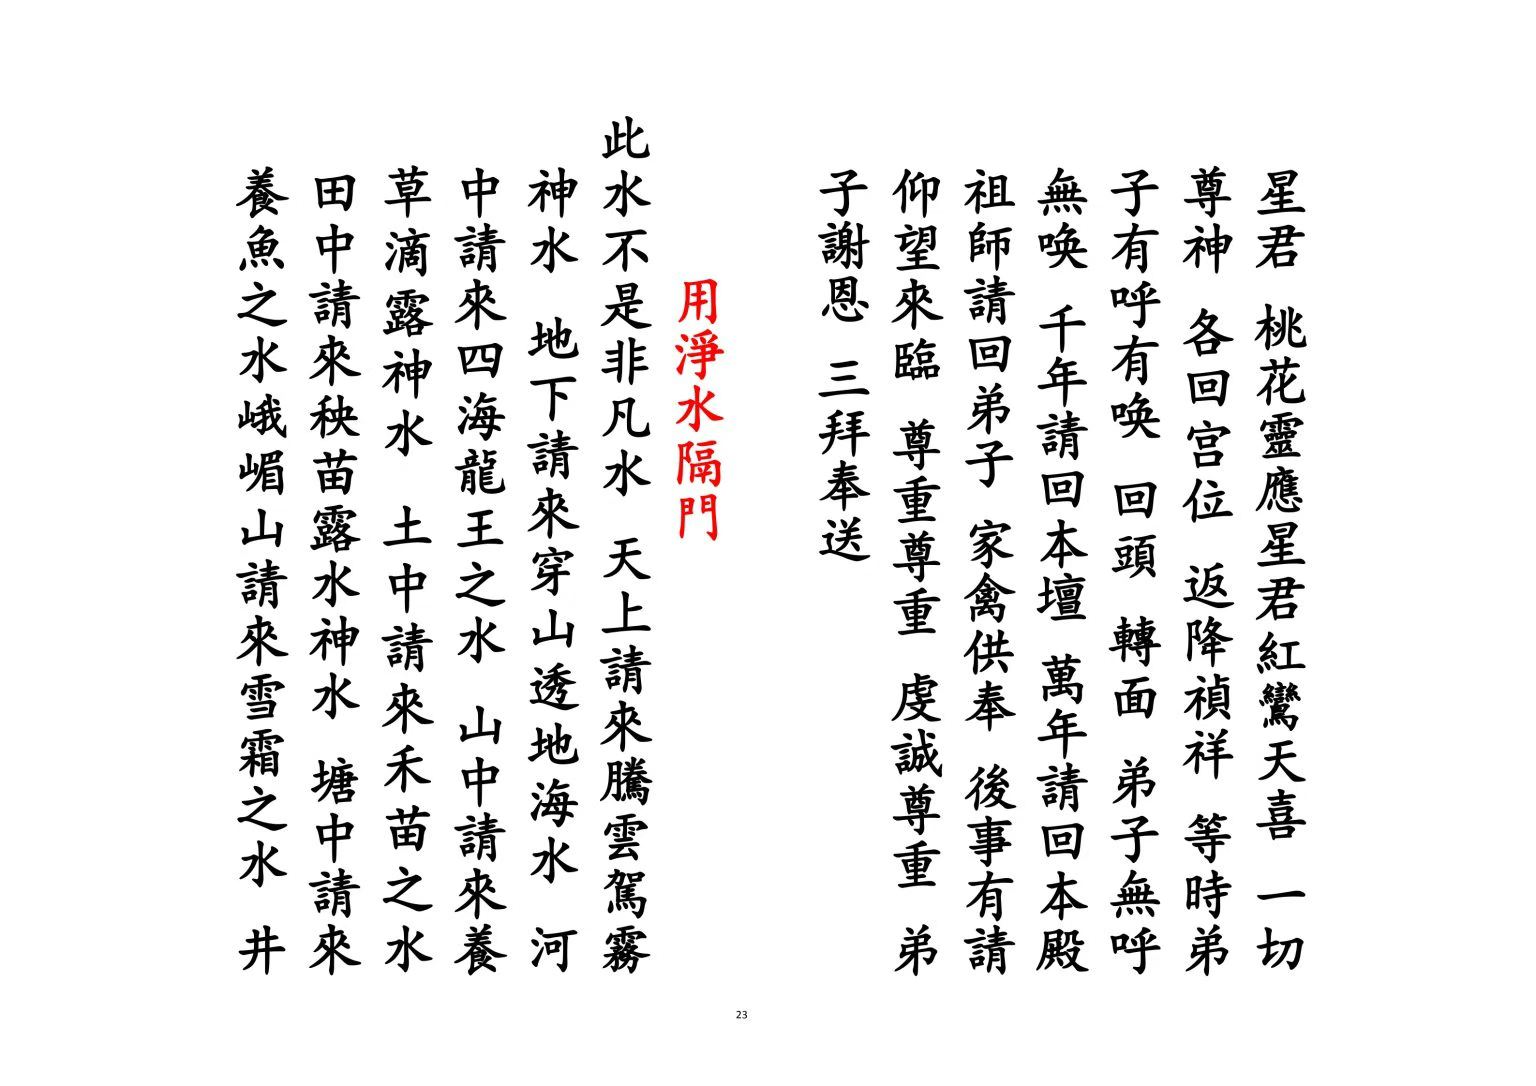 星君 桃花靈應星君紅鸞天喜 一切
尊神 各回宮位 返降禎祥 等時弟
子有呼有唤 回頭 轉面 弟子無呼
無唤 千年請回本壇 萬年請回本殿
祖師請回弟子 家禽供奉 後事有請
仰望來臨 尊重尊重 虔誠尊重 弟
子謝恩 三拜奉送
用淨水隔門
此水不是非凡水 天上請來騰雲駕霧
神水 地下請來穿山透地海水 河
中請來四海龍王之水 山中請來養
草滴露神水 土中請來禾苗之水
田中請來秧苗露水神水 塘中請來
養魚之水峨嵋山請來雪霜之水 井
23